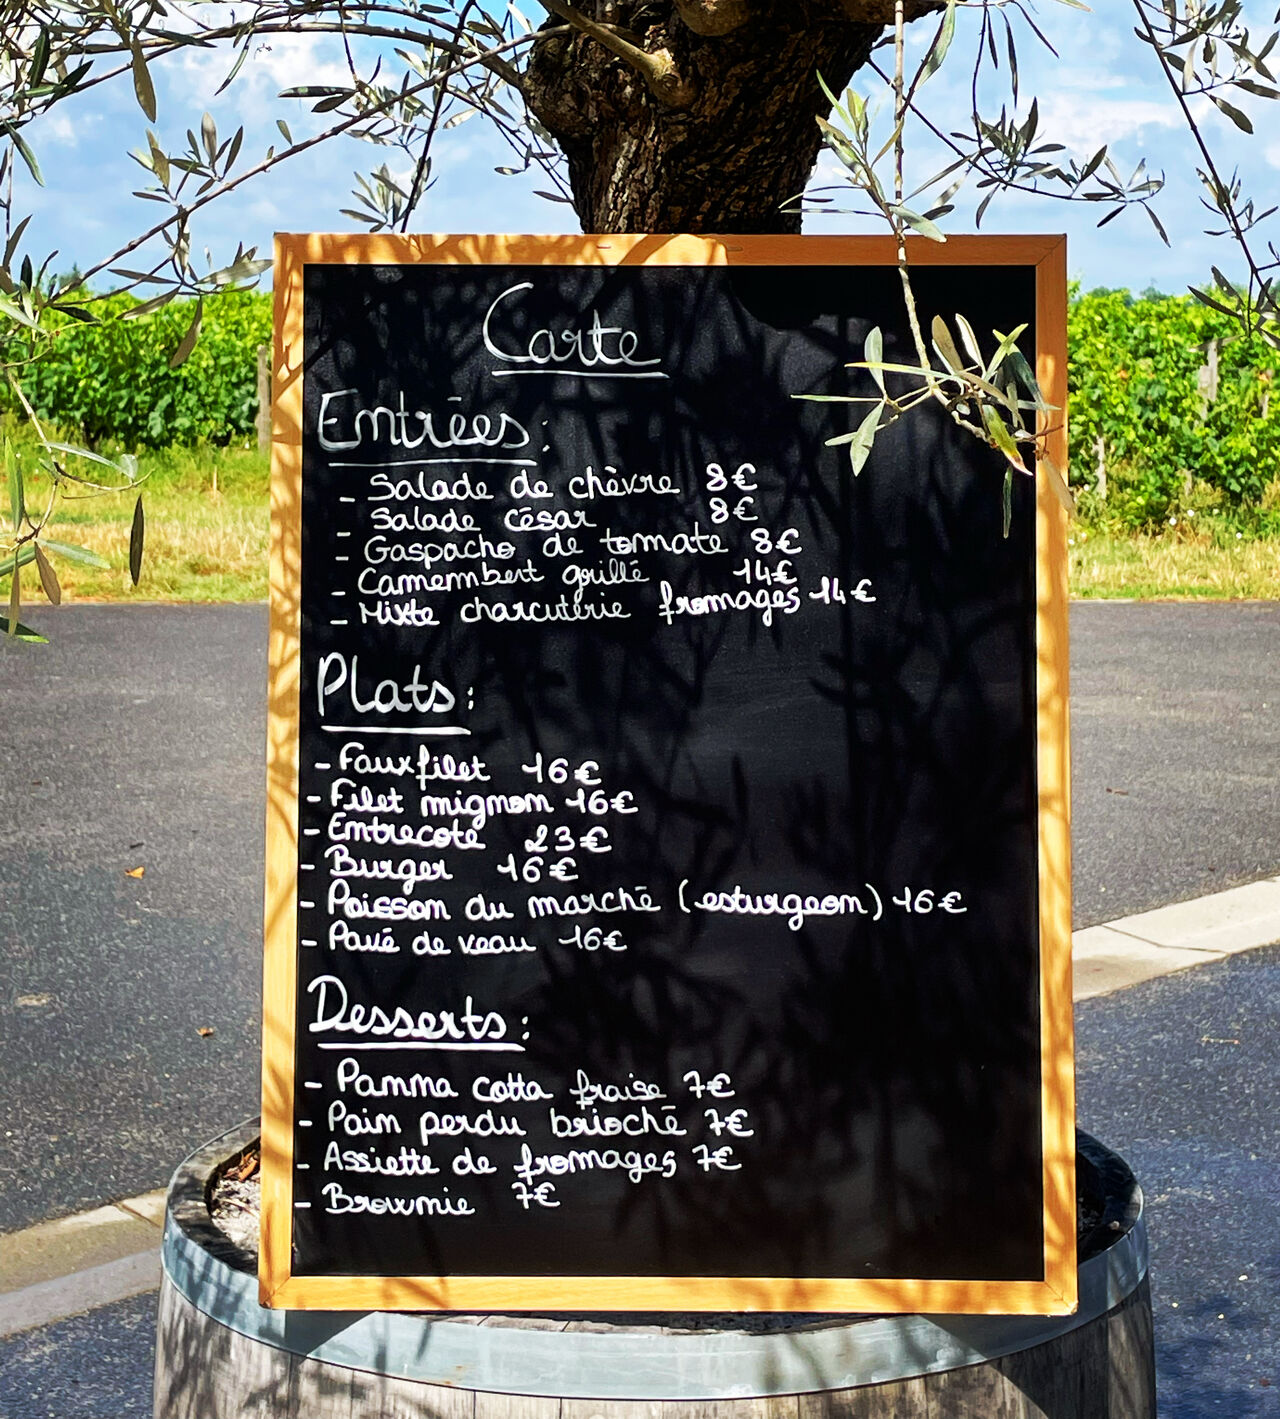 Carte
Entrées :
- Salade de chèvre 8€
- Salade césar 8€
- Gaspacho de tomate 8€
- Camembert grillé 14€
- Mixte charcuterie fromages 14€
Plats :
- Faux filet 16€
- Filet mignon 16€
- Entrecote 23€
- Burger 16€
- Poisson du marché (esturgeon) 16€
- Pavé de veau 16€
Desserts :
- Panna cotta fraise 7€
- Pain perdu brioché 7€
- Assiette de fromages 7€
- Brownie 7€